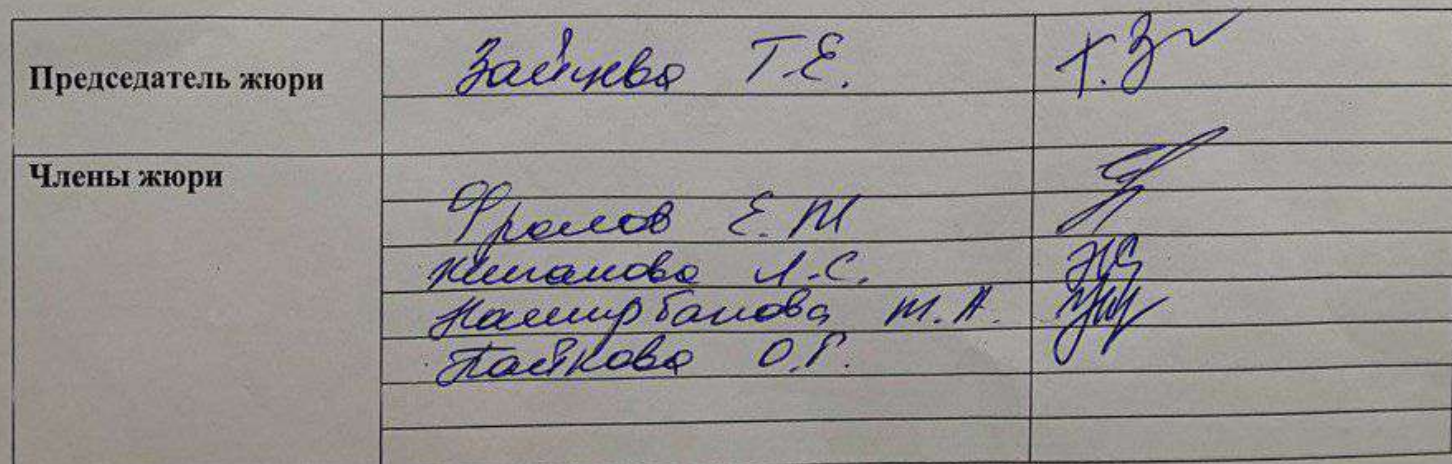 Председатель жюри Зайцева Т.Е. Т.З
Члены жюри
Фролов Е.М
Жиганова Л.С.
М.А.
Пайкова О.Г.